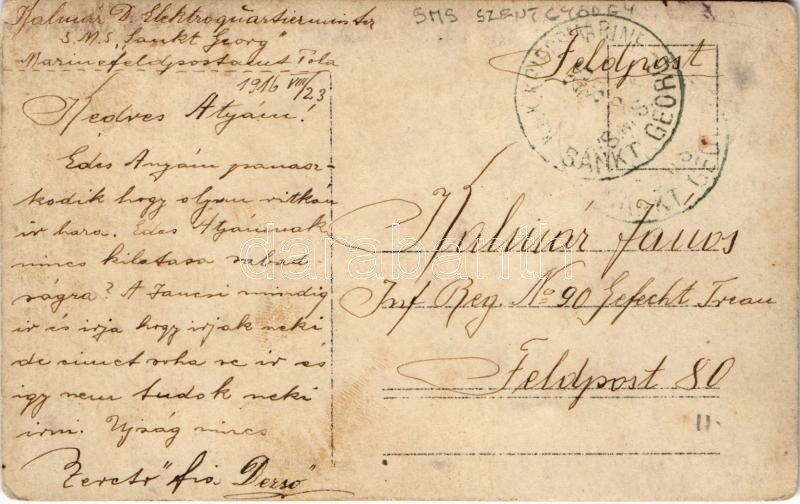 Kalmár D. Elektroquartiermeister
S.M.S. "Sankt Georg"
Marinefeldpostamt Pola
1916 VIII/23
Kedves Atyám!
Édes Anyám panasz-
kodik hogy olyan ritkán
ir haza. Édes Atyámnak
nincs kilátása szabad-
ságra? A Jancsi mindig
ir és irja hogy irjak neki
de cimet soha se ir és
igy nem tudok neki
irni. Ujság nincs
Szerető "fia Dezső"
SMS SZENT GYÖRGY
Feldpost
K.u.K. KRIEGSMARINE
S.M.S.
SANKT GEORG
Kalmár János
Inf Reg. No 90 Gefecht Train
Feldpost 80
11.
darabanth